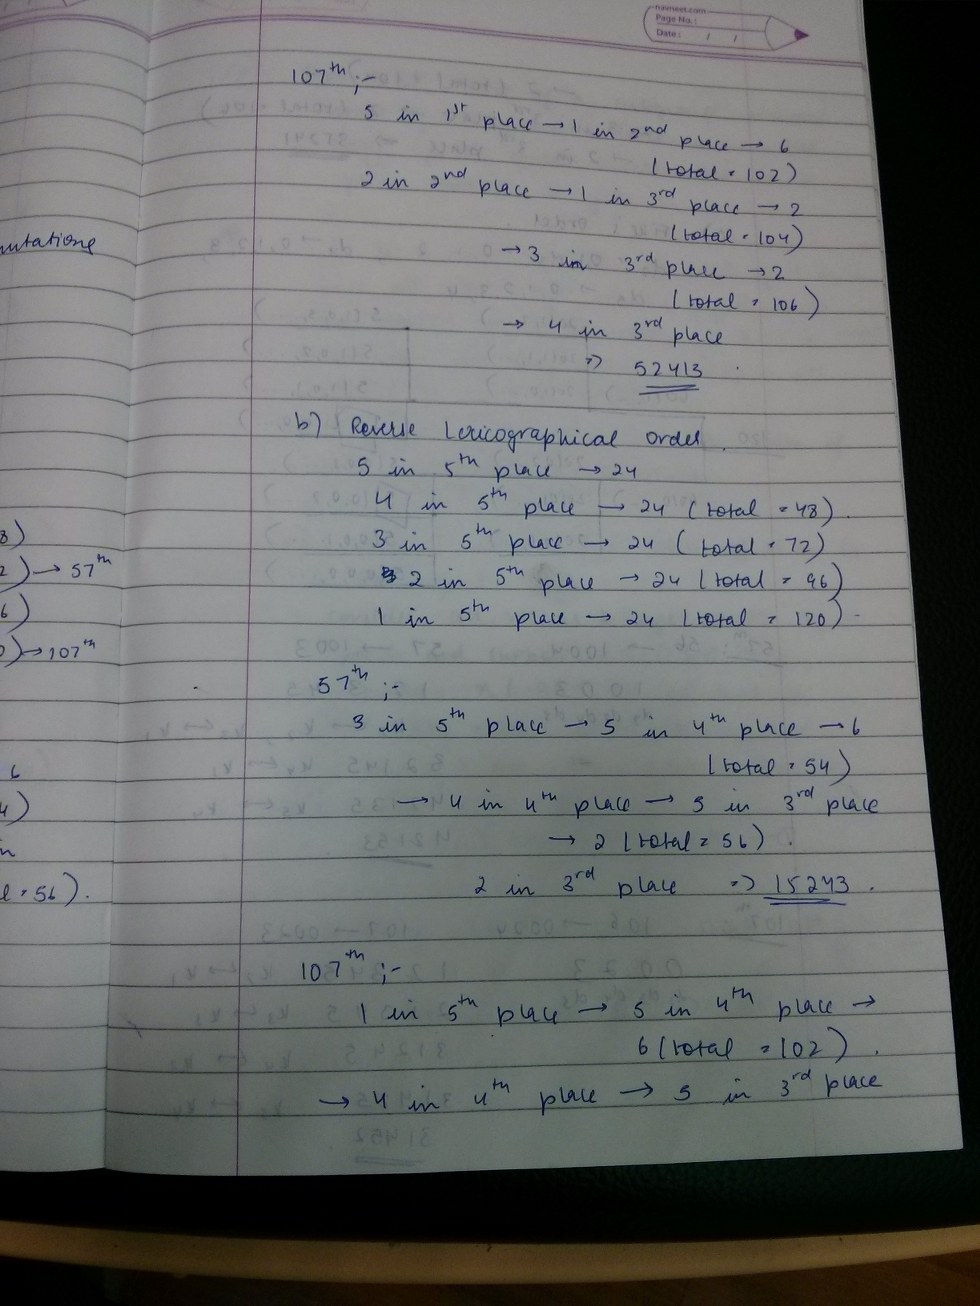 navneet.com
Page No.:
Date: / /
107th ;-
5 in 1st place → 1 in 2nd place → 6
(total = 102)
2 in 2nd place → 1 in 3rd place → 2
(total = 104)
→ 3 in 3rd place → 2
(total = 106)
→ 4 in 3rd place
⇒ 52413
b) Reverse Lexicographical order.
5 in 5th place → 24
4 in 5th place → 24 (total = 48).
3 in 5th place → 24 (total = 72)
2 in 5th place → 24 (total = 96)
1 in 5th place → 24 (total = 120).
57th ;-
3 in 5th place → 5 in 4th place → 6
(total = 54)
→ 4 in 4th place → 5 in 3rd place
→ 2 (total = 56).
2 in 3rd place ⇒ 15243.
107th ;-
1 in 5th place → 5 in 4th place →
6 (total = 102).
→ 4 in 4th place → 5 in 3rd place
mutations
8)
2) → 57th
6)
) → 107th
6
4)
n
l = 56).